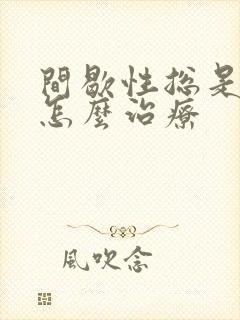 間歇性總是
怎麼治療
風吹念